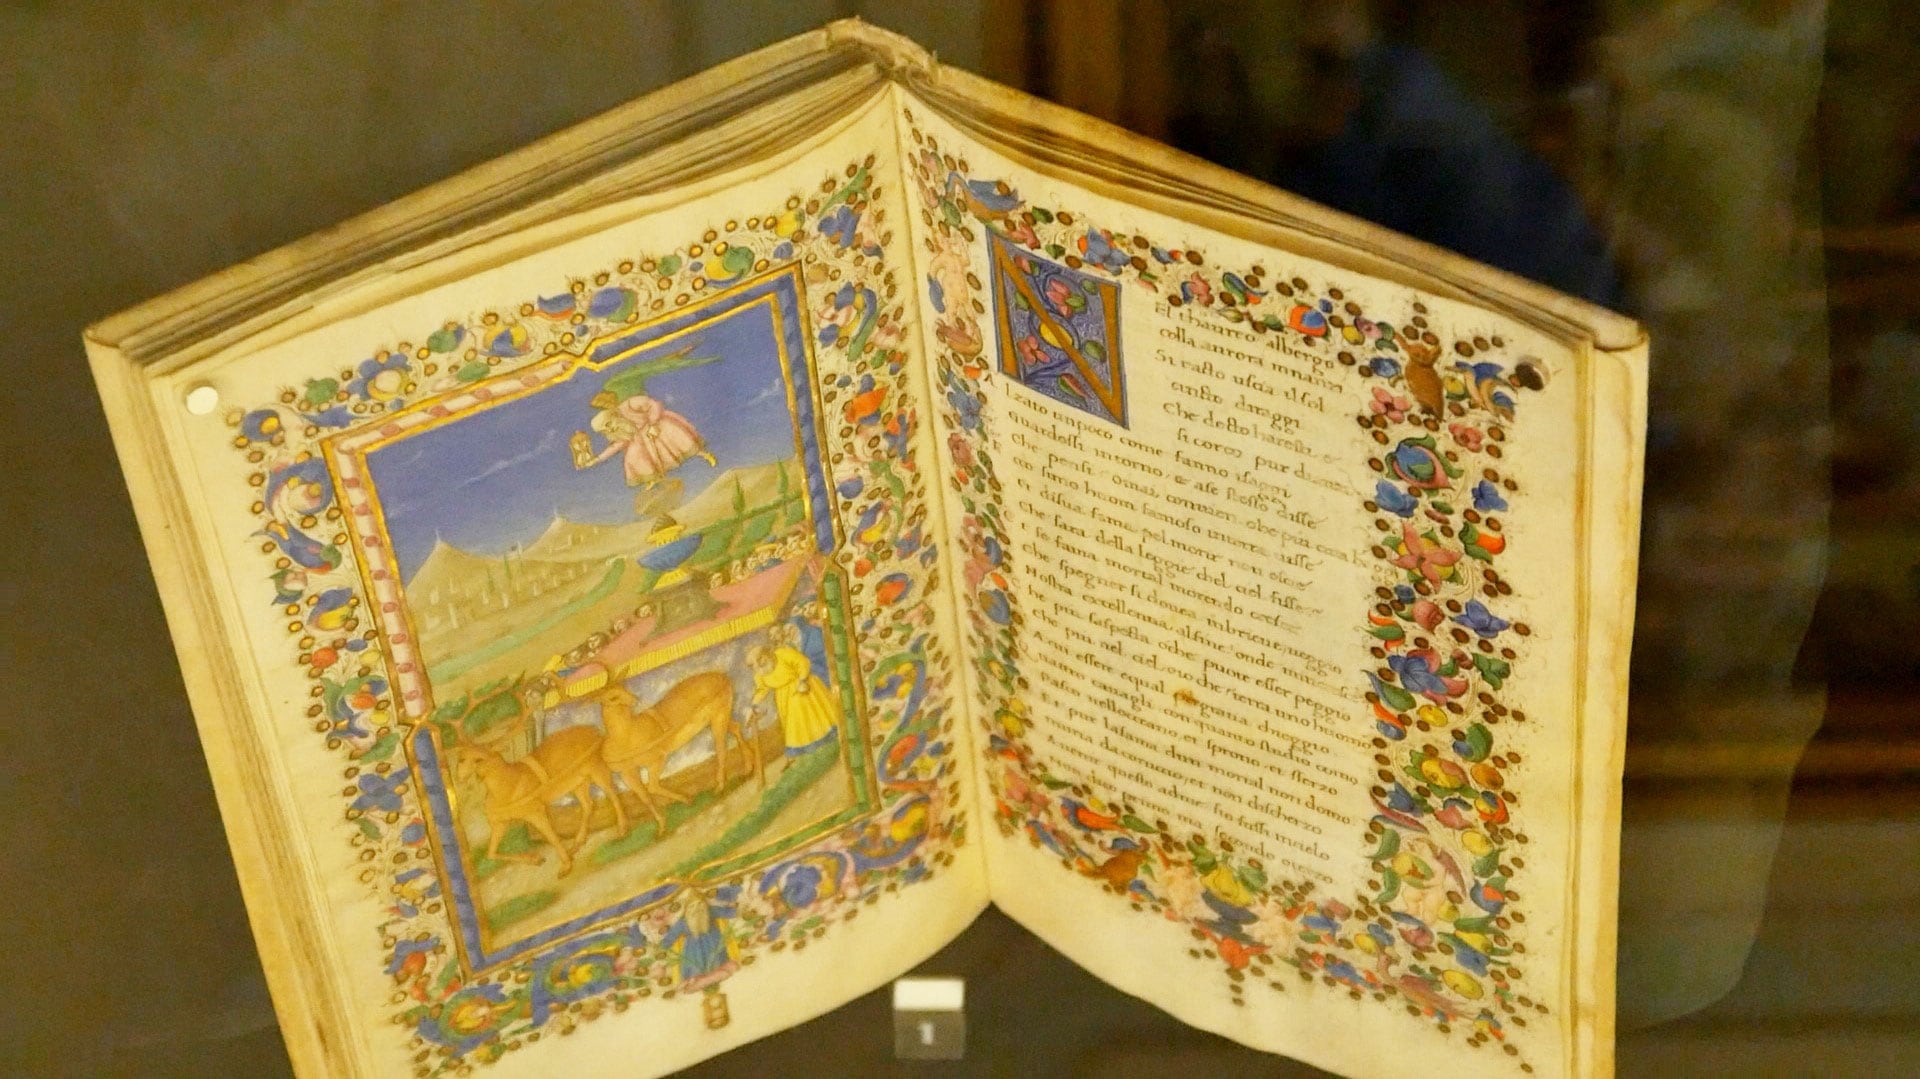 N
El thaureo albergo
colla aurora innanzi
Si ratto uscia il sol
cinto di raggi
Che decto haresti e
si corco pur
Alzato un poco come fanno isaggi
Guardossi intorno, et ase stesso disse
Che pensi omai convien che piu cura
cco suno huom famoso interra visse
Et disua fama pel morir non esce
Che sara della legge chel ciel fisse
E se fama mortal morendo cresce
Che spegner si dovea inbrieve, veggio
Nostra excellenza alfine, onde
he piu saspecta oche puote esser peggio
Che piu nel ciel o io che interra uno huomo
A cui essere equal per gratia cheggio
uatro cavagli con quanto studio como
Pasco nelloceano, et sprono et sferzo
Et pur lafama dun mortal non domo
niuria da corruccio, et non discherzo
Avenir questo adme, sio fussi incielo
Non diro primo ma secondo overzo
1